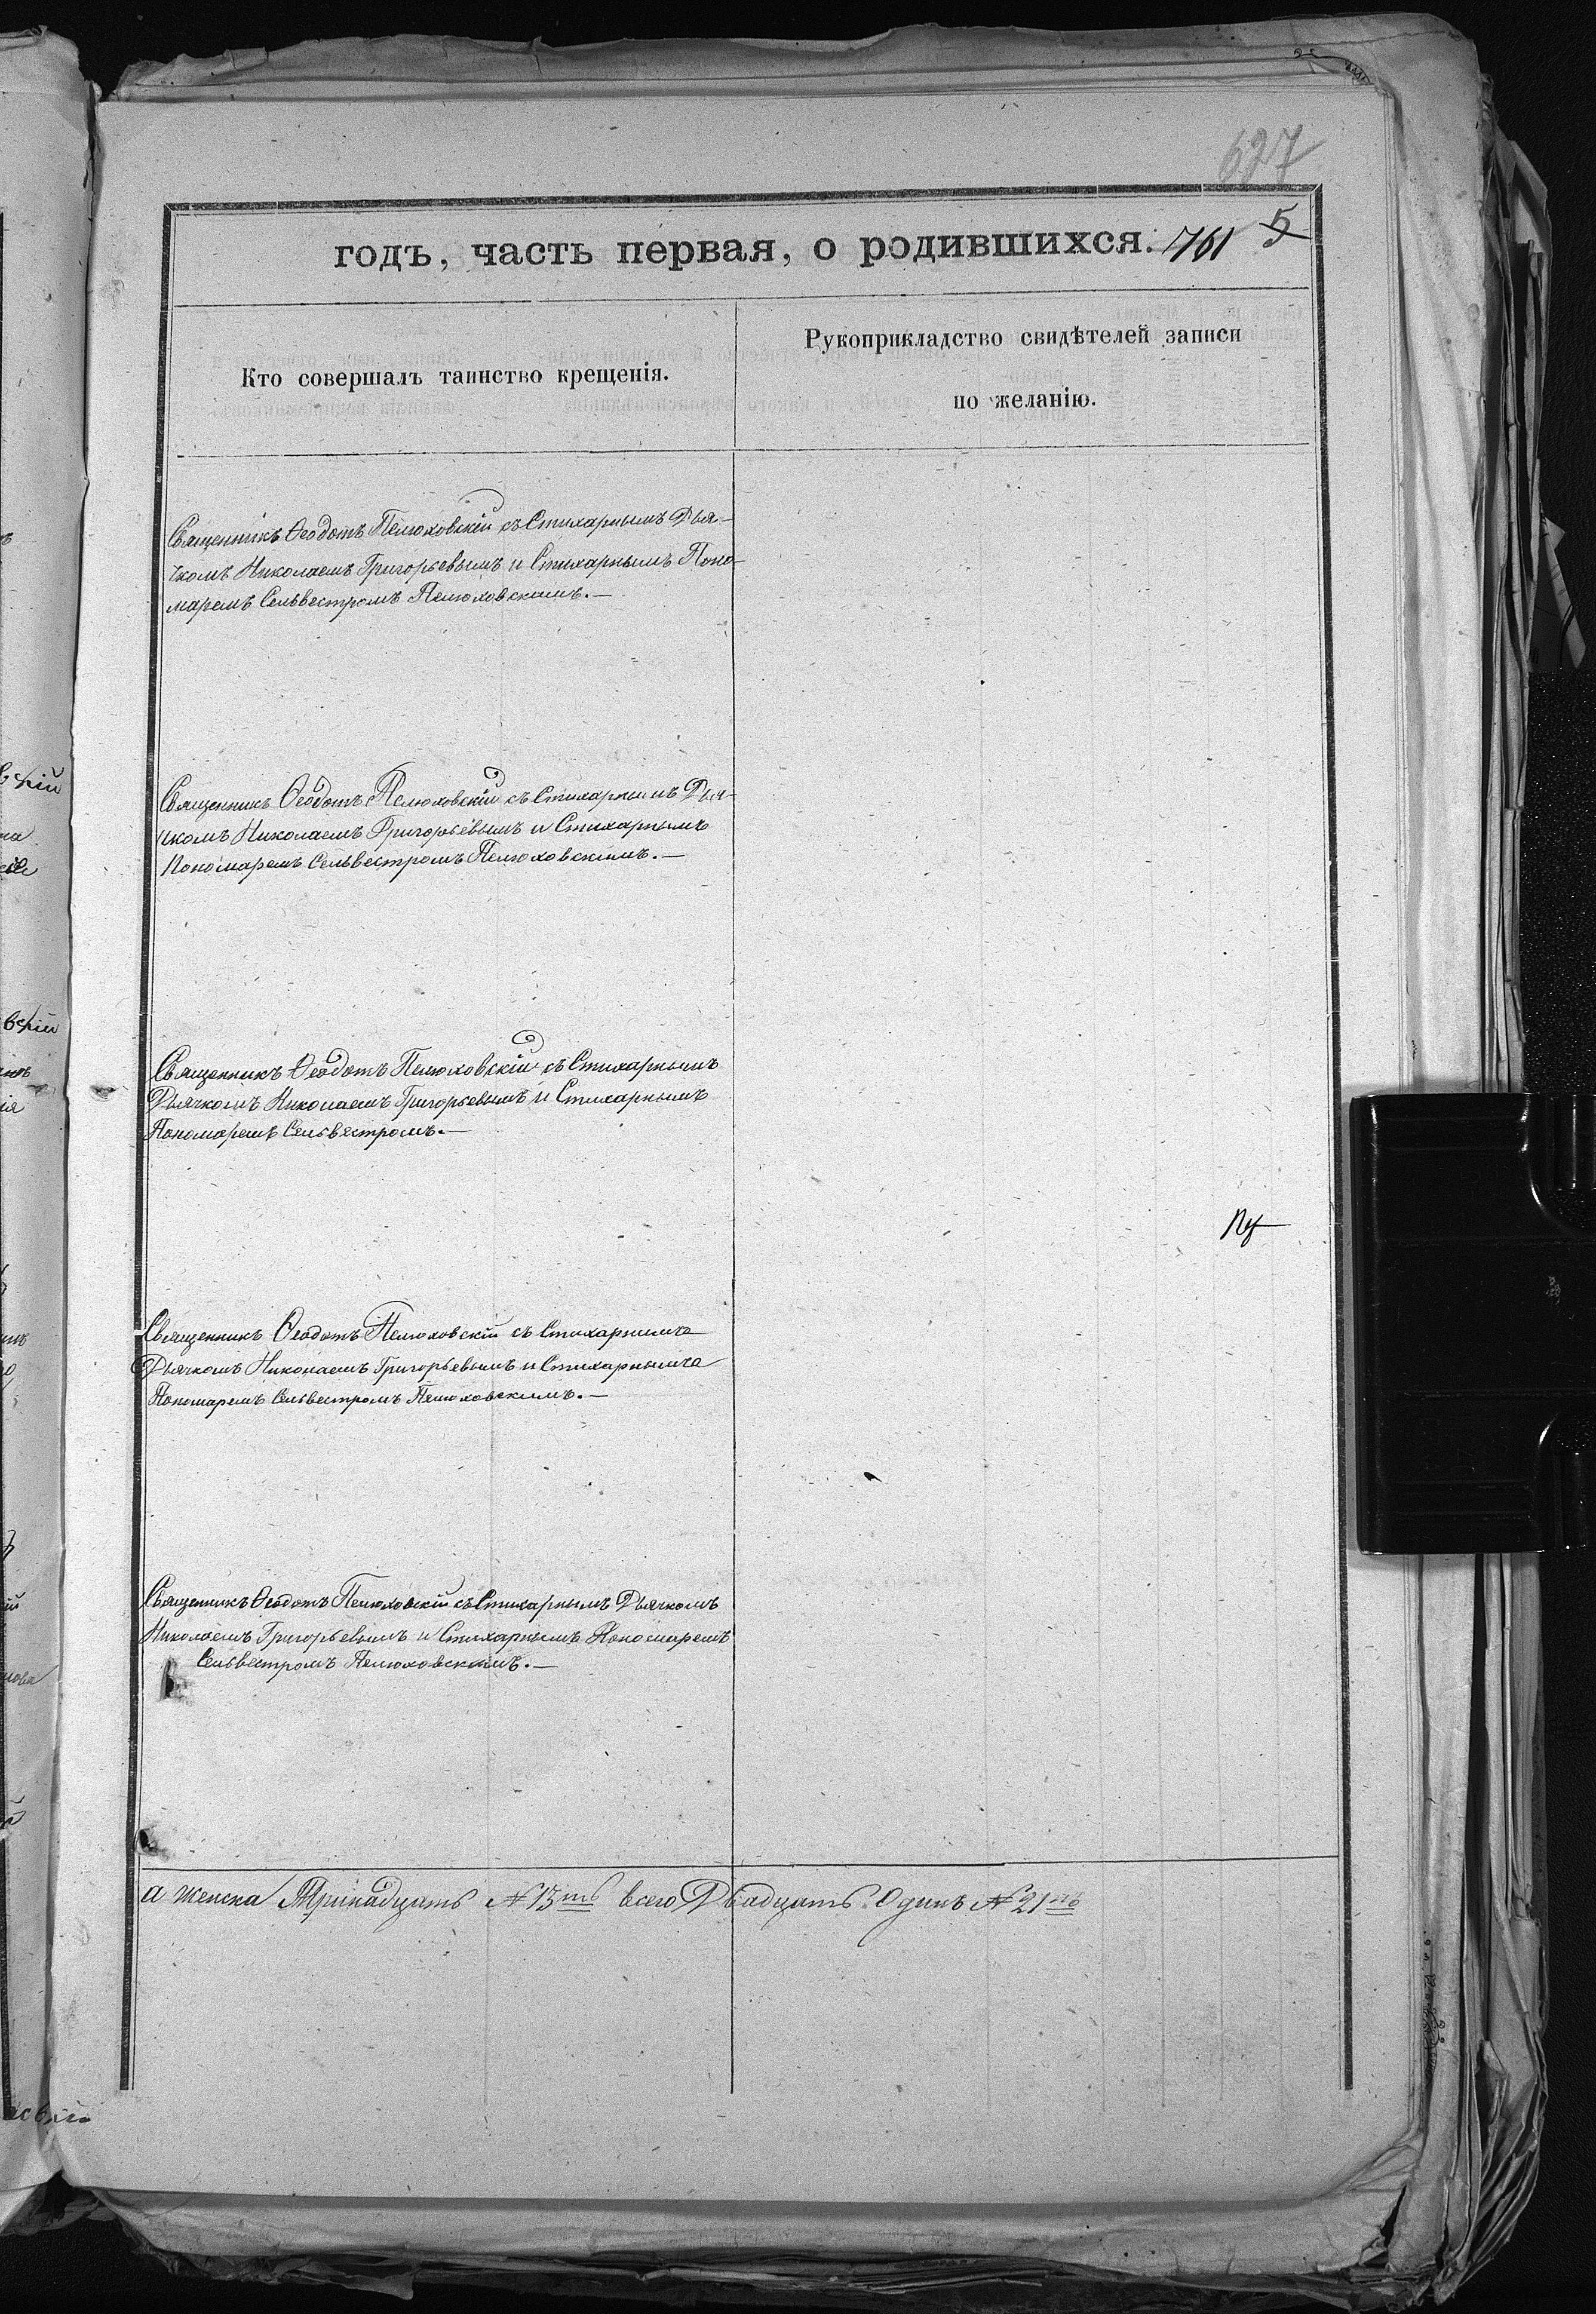 627
годъ, часть первая, о родившихся. 761 5
Кто совершалъ таинство крещенія.
Рукоприкладство свидѣтелей записи
по желанію.
Священникъ Ѳеодотъ Пелюховскій съ Стихарнымъ Дья-
чкомъ Николаемъ Григорьевымъ и Стихарнымъ Поно-
маремъ Сельвестромъ Пелюховскимъ.—
Священникъ Ѳеодотъ Пелюховскій съ Стихарнымъ Дья-
чкомъ Николаемъ Григорьевымъ и Стихарнымъ
Пономаремъ Сельвестромъ Пелюховскимъ.—
Священникъ Ѳеодотъ Пелюховскій съ Стихарнымъ
Дьячкомъ Николаемъ Григорьевымъ и Стихарнымъ
Пономаремъ Сельвестромъ.—
Священникъ Ѳеодотъ Пелюховскій съ Стихарнымъ
Дьячкомъ Николаемъ Григорьевымъ и Стихарнымъ
Пономаремъ Сельвестромъ Пелюховскимъ.—
Священникъ Ѳеодотъ Пелюховскій съ Стихарнымъ Дьячкомъ
Николаемъ Григорьевымъ и Стихарнымъ Пономаремъ
Сельвестромъ Пелюховскимъ.—
а женска Тринадцать № 13ть всего Двадцать Одинъ № 21нъ